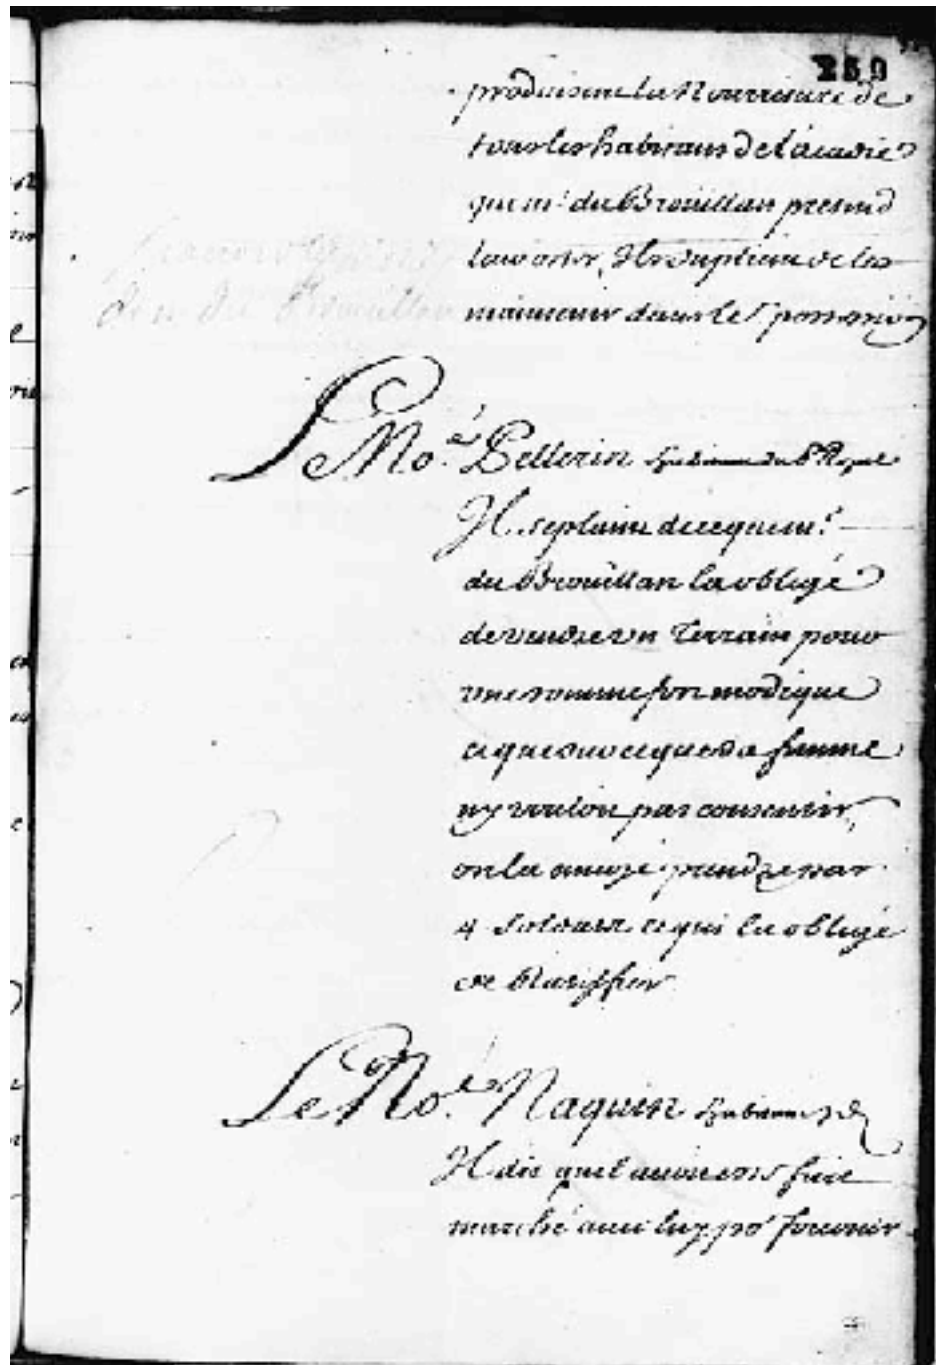 259
produisent la Nourriture de
tous les habitans de l'acadie
que mr. du Brouillan pretend
leur oster, Ils suplient de les
maintenir dans le possession
Le No.é Pellerin habitant du P.t Royal
Il se plaint de ce que mr.
du Brouillan la obligé
de vendre un Terrain pour
une somme fort modique
et que sur ce que sa femme
ny vouloit pas consentir,
on la envoyé prendre par
4 soldats ce qui la obligé
de
Le No.é Naquin habitant
Il dit
marché avec luy po.r fournir